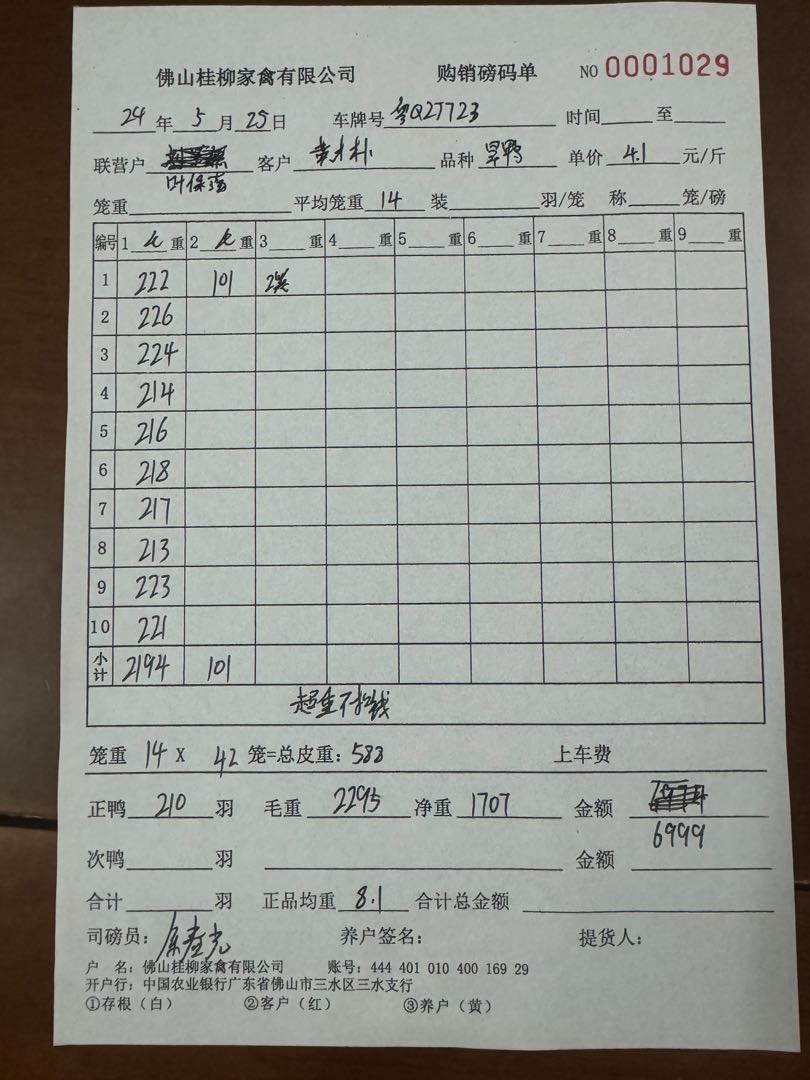 佛山桂柳家禽有限公司 购销磅码单 NO 0001029
24年5月25日 车牌号 粤Q2J723 时间 至
联营户 客户 品种 旱鸭 单价 4.1 元/斤
叶保
笼重 平均笼重 14 装 羽/笼 称 笼/磅
编号 1 重 2 重 3 重 4 重 5 重 6 重 7 重 8 重 9 重
1 222 101
2 226
3 224
4 214
5 216
6 218
7 217
8 213
9 223
10 221
小计 2194 101
超重不扣钱
笼重 14 X 42 笼=总皮重: 588 上车费
正鸭 210 羽 毛重 2295 净重 1707 金额
6999
次鸭 羽 金额
合计 羽 正品均重 8.1 合计总金额
司磅员: 养户签名: 提货人:
户 名: 佛山桂柳家禽有限公司 账号: 444 401 010 400 169 29
开户行: 中国农业银行广东省佛山市三水区三水支行
①存根（白） ②客户（红） ③养户（黄）